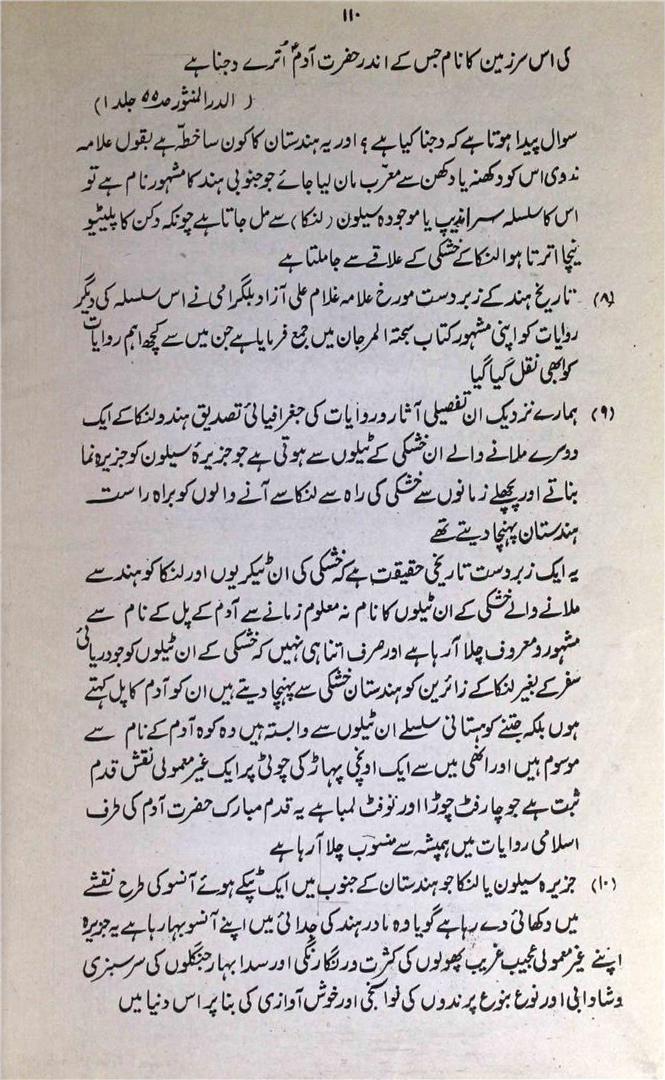 ۱۱۰
کی اس سرزمین کا نام جس کے اندر حضرت آدمؑ اُترے دجنا ہے
( الدرالمنثور صہ ۵۵ جلد ۱)
سوال پیدا ہوتا ہے کہ دجنا کیا ہے ؟ اور یہ ہندستان کا کون سا خطہ ہے بقول علامہ
ندوی اس کو دکھنہ یا دکھن سے معرّب مان لیا جائے جو جنوبی ہند کا مشہور نام ہے تو
اس کا سلسلہ سراندیپ یا موجودہ سیلون (لنکا) سے مل جاتا ہے چونکہ دکن کا پلیٹیو
نیچا اترتا ہوا لنکا کے خشکی کے علاقے سے جا ملتا ہے
(۸) تاریخ ہند کے زبردست مورخ علامہ غلام علی آزاد بلگرامی نے اس سلسلہ کی دیگر
روایات کو اپنی مشہور کتاب سبحتہ المرجان میں جمع فرمایا ہے جن میں سے کچھ اہم روایات
کو ابھی نقل کیا گیا
(۹) ہمارے نزدیک ان تفصیلی آثار و روایات کی جغرافیائی تصدیق ہند و لنکا کے ایک
دوسرے ملانے والے ان خشکی کے ٹیلوں سے ہوتی ہے جو جزیرۂ سیلون کو جزیرہ نما
بناتے اور پچھلے زمانوں سے خشکی کی راہ سے لنکا سے آنے والوں کو براہ راست
ہندستان پہنچا دیتے تھے
یہ ایک زبردست تاریخی حقیقت ہے کہ خشکی کی ان ٹیکریوں اور لنکا کو ہند سے
ملانے والے خشکی کے ان ٹیلوں کا نام نہ معلوم زمانے سے آدم کے پل کے نام سے
مشہور و معروف چلا آ رہا ہے اور صرف اتنا ہی نہیں کہ خشکی کے ان ٹیلوں کو جو دریائی
سفر کے بغیر لنکا کے زائرین کو ہندستان خشکی سے پہنچا دیتے ہیں ان کو آدم کا پل کہتے
ہوں بلکہ جتنے کوہستانی سلسلے ان ٹیلوں سے وابستہ ہیں وہ کوہ آدم کے نام سے
موسوم ہیں اور انھی میں سے ایک اونچی پہاڑ کی چوٹی پر ایک غیر معمولی نقش قدم
ثبت ہے جو چار فٹ چوڑا اور نو فٹ لمبا ہے یہ قدم مبارک حضرت آدم کی طرف
اسلامی روایات میں ہمیشہ سے منسوب چلا آ رہا ہے
(۱۰) جزیرہ سیلون یا لنکا جو ہندستان کے جنوب میں ایک ٹپکے ہوئے آنسو کی طرح نقشے
میں دکھائی دے رہا ہے گویا وہ مادر ہند کی جدائی میں اپنے آنسو بہا رہا ہے یہ جزیرہ
اپنے غیر معمولی عجیب غریب پھولوں کی کثرت ورنگارنگی اور سدا بہار جنگلوں کی سرسبزی
وشادابی اور نوع بنوع پرندوں کی نوا سنجی اور خوش آوازی کی بنا پر اس دنیا میں